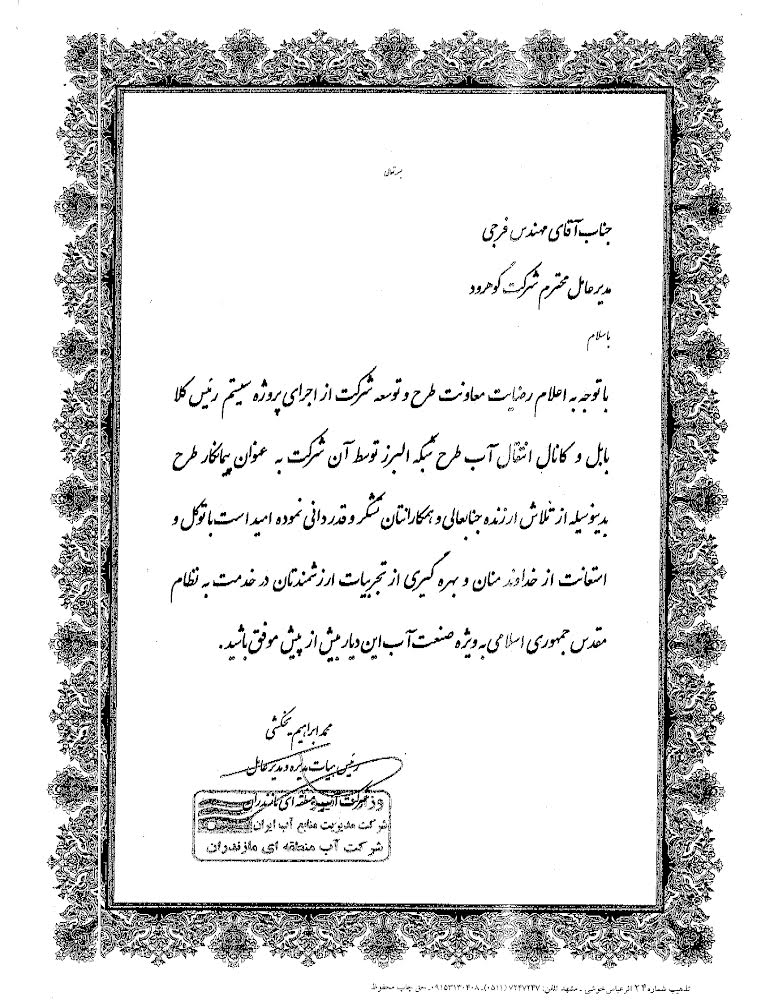 بسمه تعالی
جناب آقای مهندس فرجی
مدیرعامل محترم شرکت کوهرود
باسلام
باتوجه به اعلام رضایت معاونت طرح و توسعه شرکت از اجرای پروژه سیستم رئیس کلا
بابل و کانال انتقال آب طرح شبکه البرز توسط آن شرکت به عنوان پیمانکار طرح
بدینوسیله از تلاش ارزنده جنابعالی و همکارانتان تشکر و قدردانی نموده امید است با توکل و
استعانت از خداوند منان و بهره گیری از تجربیات ارزشمندتان در خدمت به نظام
مقدس جمهوری اسلامی به ویژه صنعت آب این دیار بیش از پیش موفق باشید.
محمد ابراهیم یخکشی
رئیس هیات مدیره و مدیرعامل
شرکت آب منطقه ای مازندران
شرکت مدیریت منابع آب ایران
شرکت آب منطقه ای مازندران
تذهیب شماره ۲۴ اثر عباس خوشی - مشهد تلفن: ۷۲۴۷۲۴۷ (۰۵۱۱) - ۰۹۱۵۳۱۳۰۴۰۸ - حق چاپ محفوظ